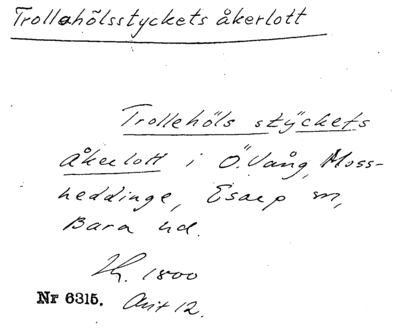 Trollahölsstyckets åkerlott
Trollehöls stÿckets
åkerlott i Ö. Vång, Moss-
heddinge, Esarp sn,
Bara hd.
1800
Nr 6315. Akt 12.